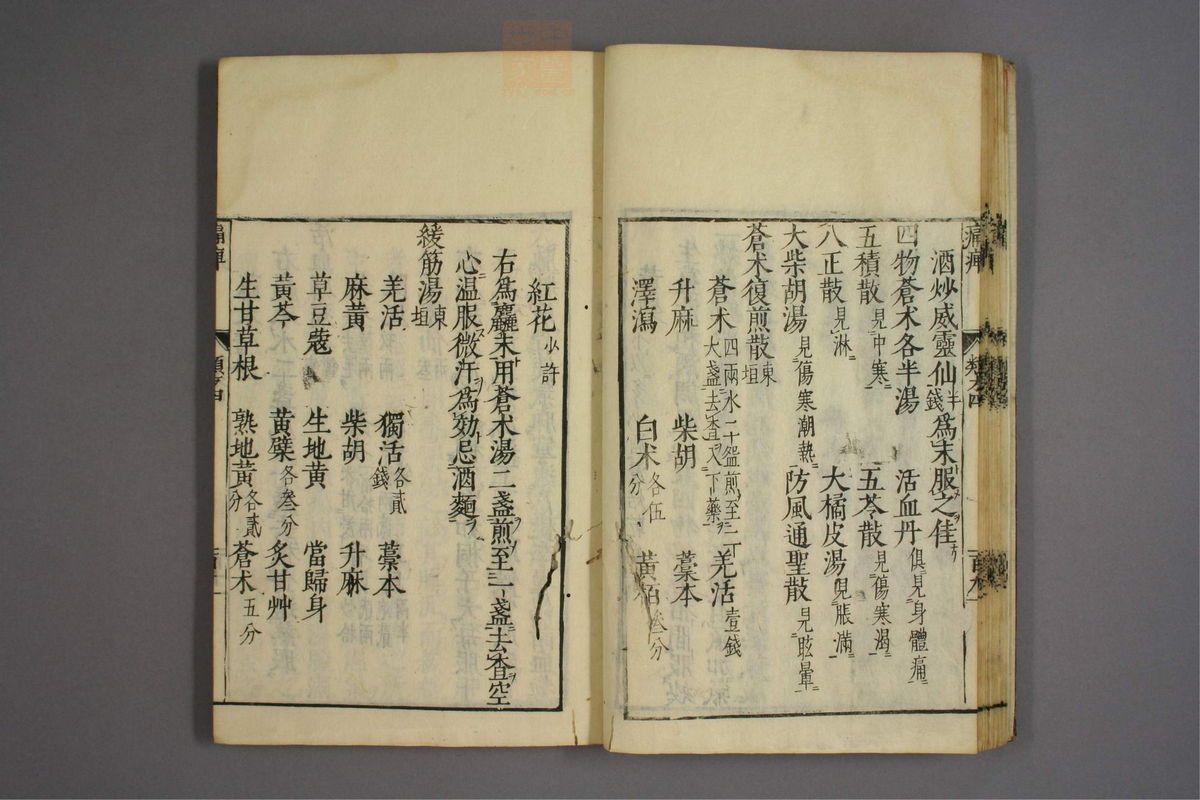 酒炒威靈仙半錢爲末服之佳
四物蒼朮各半湯 活血丹俱見身體痛
五積散見中寒 五苓散見傷寒渴
八正散見淋 大橘皮湯見脹滿
大柴胡湯見傷寒潮熱 防風通聖散見眩暈
蒼朮復煎散東垣
蒼朮四兩水二十盌煎至二大盞去查又下藥 羌活壹錢
升麻 柴胡 藁本
澤瀉 白朮各伍分 黃栢叁分
紅花少許
右爲麤末用蒼朮湯二盞煎至一盞去查空
心温服微汗爲効忌酒麵
緩筋湯東垣
羌活 獨活各貳錢 藁本
麻黃 柴胡 升麻
草豆蔻 生地黃 當歸身
黃芩 黃檗各叁分 炙甘艸
生甘草根 熟地黃各貳分 蒼朮五分